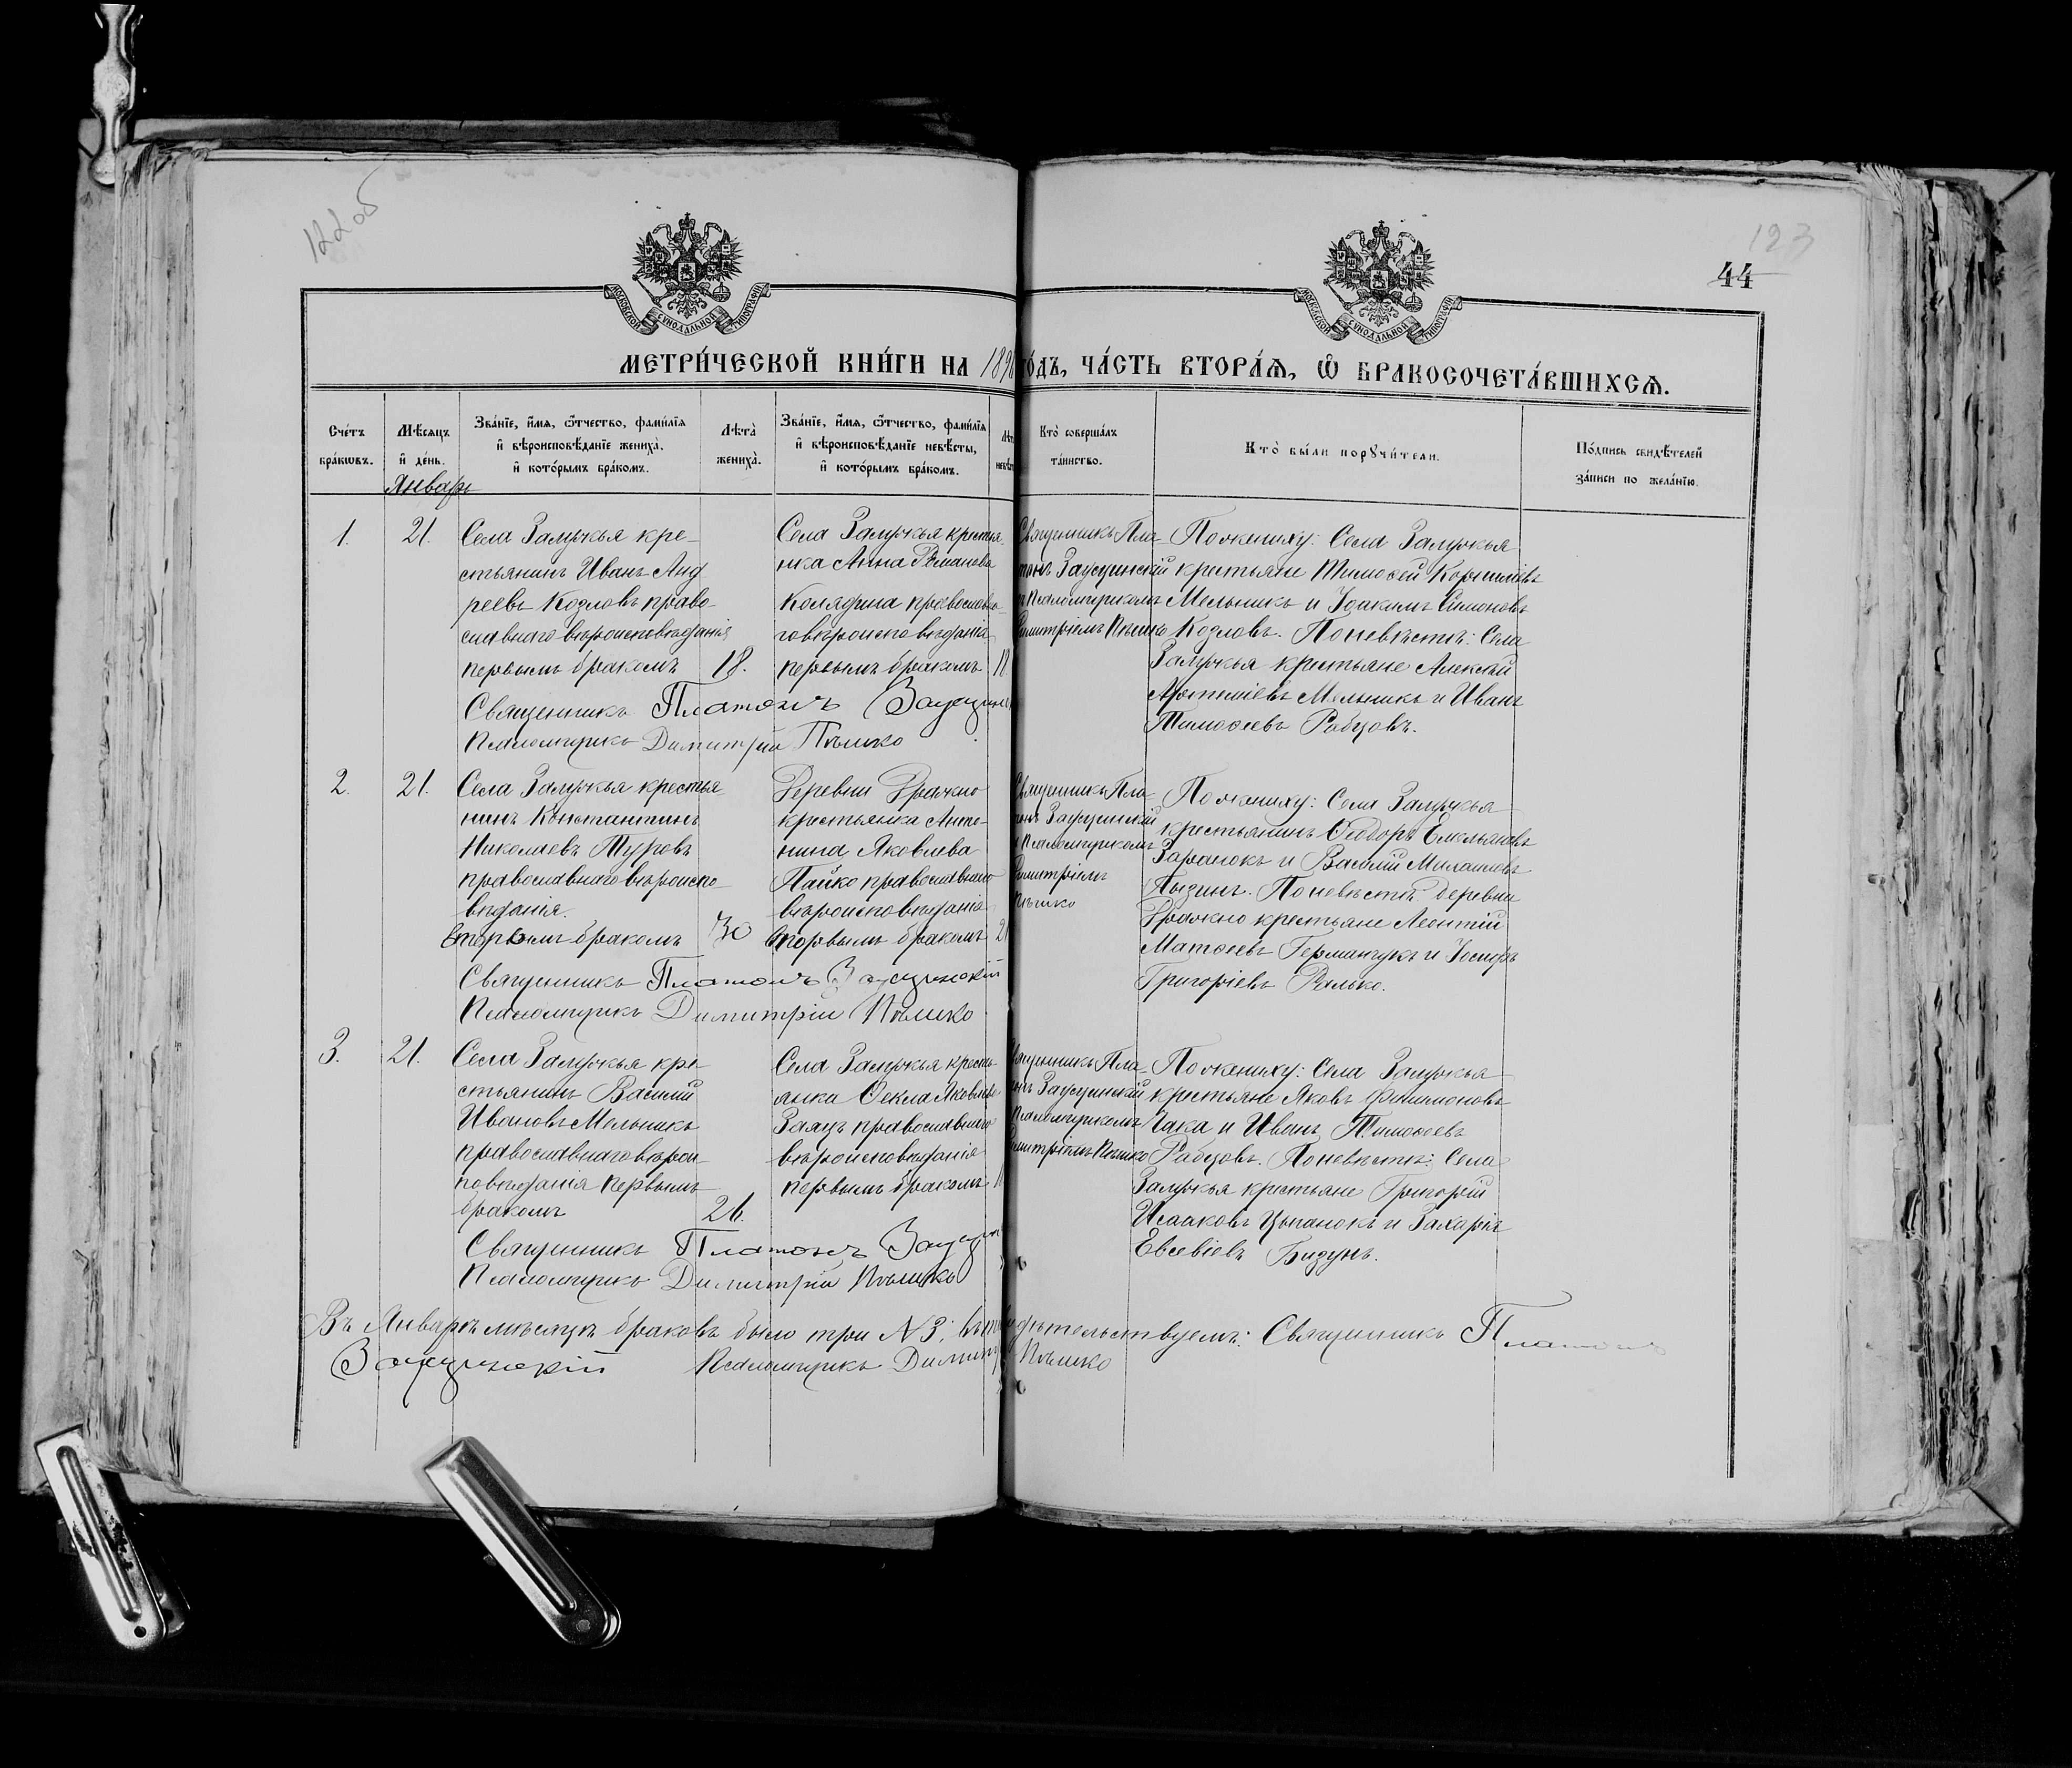 122об
123
44
МОСКОВСКОЙ СѴНОДАЛЬНОЙ ТИПОГРАФІИ
МОСКОВСКОЙ СѴНОДАЛЬНОЙ ТИПОГРАФІИ
МЕТРИ́ЧЕСКОЙ КНИ́ГИ НА 189 ГО́ДЪ, ЧА́СТЬ ВТОРА́Ѧ, Ѽ БРАКОСОЧЕТА́ВШИХСѦ.
Сче́тъ бра́кѡвъ.
Мѣ́сѧцъ и҆ де́нь.
Зва́нїе, и҆́мѧ, ѻ҆́тчество, фами́лїѧ и҆ вѣроисповѣ́данїе жениха̀, и҆ кото́рымъ бра́комъ.
Лѣта̀ жениха̀.
Зва́нїе, и҆́мѧ, ѻ҆́тчество, фами́лїѧ и҆ вѣроисповѣ́данїе невѣ́сты, и҆ кото́рымъ бра́комъ.
Кто̀ соверша́лъ та́инство.
Кто̀ бы́ли порꙋчи́тели.
По́дпись свидѣ́телей за́писи по жела́нїю.
Январь
1.
21.
Села Залужья кре-
стьянинъ Иванъ Анд
реевъ Козловъ право-
славнаго вѣроисповѣданія
первымъ бракомъ
18.
Села Залужья крестья-
нка Анна Романова
Колядина православна-
го вѣроисповѣданія
первымъ бракомъ
18
Священникъ Пла-
тонъ Заусцинскій
Псаломщикомъ
Димитріемъ Пѣшко
По жениху: Села Залужья
крестьяне Тимоѳей Корниліевъ
Мельникъ и Іоакимъ Симоновъ
Козловъ. По невѣстѣ: Села
Залужья крестьяне Алексѣй
Артеміевъ Мельникъ и Иванъ
Тимоѳеевъ Рабцовъ.
Священникъ Платонъ Заусцинс
Псаломщикъ Димитрій Пѣшко
2.
21.
Села Залужья крестья-
нинъ Константинъ
Николаевъ Туровъ
православнаго вѣроиспо-
вѣданія.
вторымъ бракомъ
30
Деревни Дражно
крестьянка Анто-
нина Яковлева
Пайко православнаго
вѣроисповѣданія
первымъ бракомъ
2
Священникъ Пла-
тонъ Заусцинскій
Псаломщикомъ
Димитріемъ
Пѣшко
По жениху: Села Залужья
крестьянинъ Ѳедоръ Емельяновъ
и Василій
По невѣстѣ: деревни
Дражно крестьяне Леонтій
Матѳеевъ Германчукъ и Іосифъ
Григоріевъ Ралько.
Священникъ Платонъ Заусцинскій
Псаломщикъ Димитрій Пѣшко
3.
21.
Села Залужья кре-
стьянинъ Василій
Ивановъ Мельникъ
православнаго вѣроис-
повѣданія первымъ
бракомъ
26.
Села Залужья кресть-
янка Ѳекла Яковлева
Заяцъ православнаго
вѣроисповѣданія
первымъ бракомъ
Священникъ Пла-
тонъ Заусцинскій
Псаломщикомъ
Димитріемъ Пѣшко
По жениху: Села Залужья
крестьяне Яковъ Филимоновъ
Чака и Иванъ Тимоѳеевъ
Рабцовъ. По невѣстѣ: Села
Залужья крестьяне Григорій
Исааковъ Цыганокъ и Захарія
Евсевіевъ Бизунъ.
Священникъ Платонъ Заусцин
Псаломщикъ Димитрій Пѣшко
Въ Январѣ мѣсяцѣ браковъ было три №3, дѣтельствуемъ: Священникъ Платонъ
Заусцинскій Псаломщикъ Димит Пѣшко